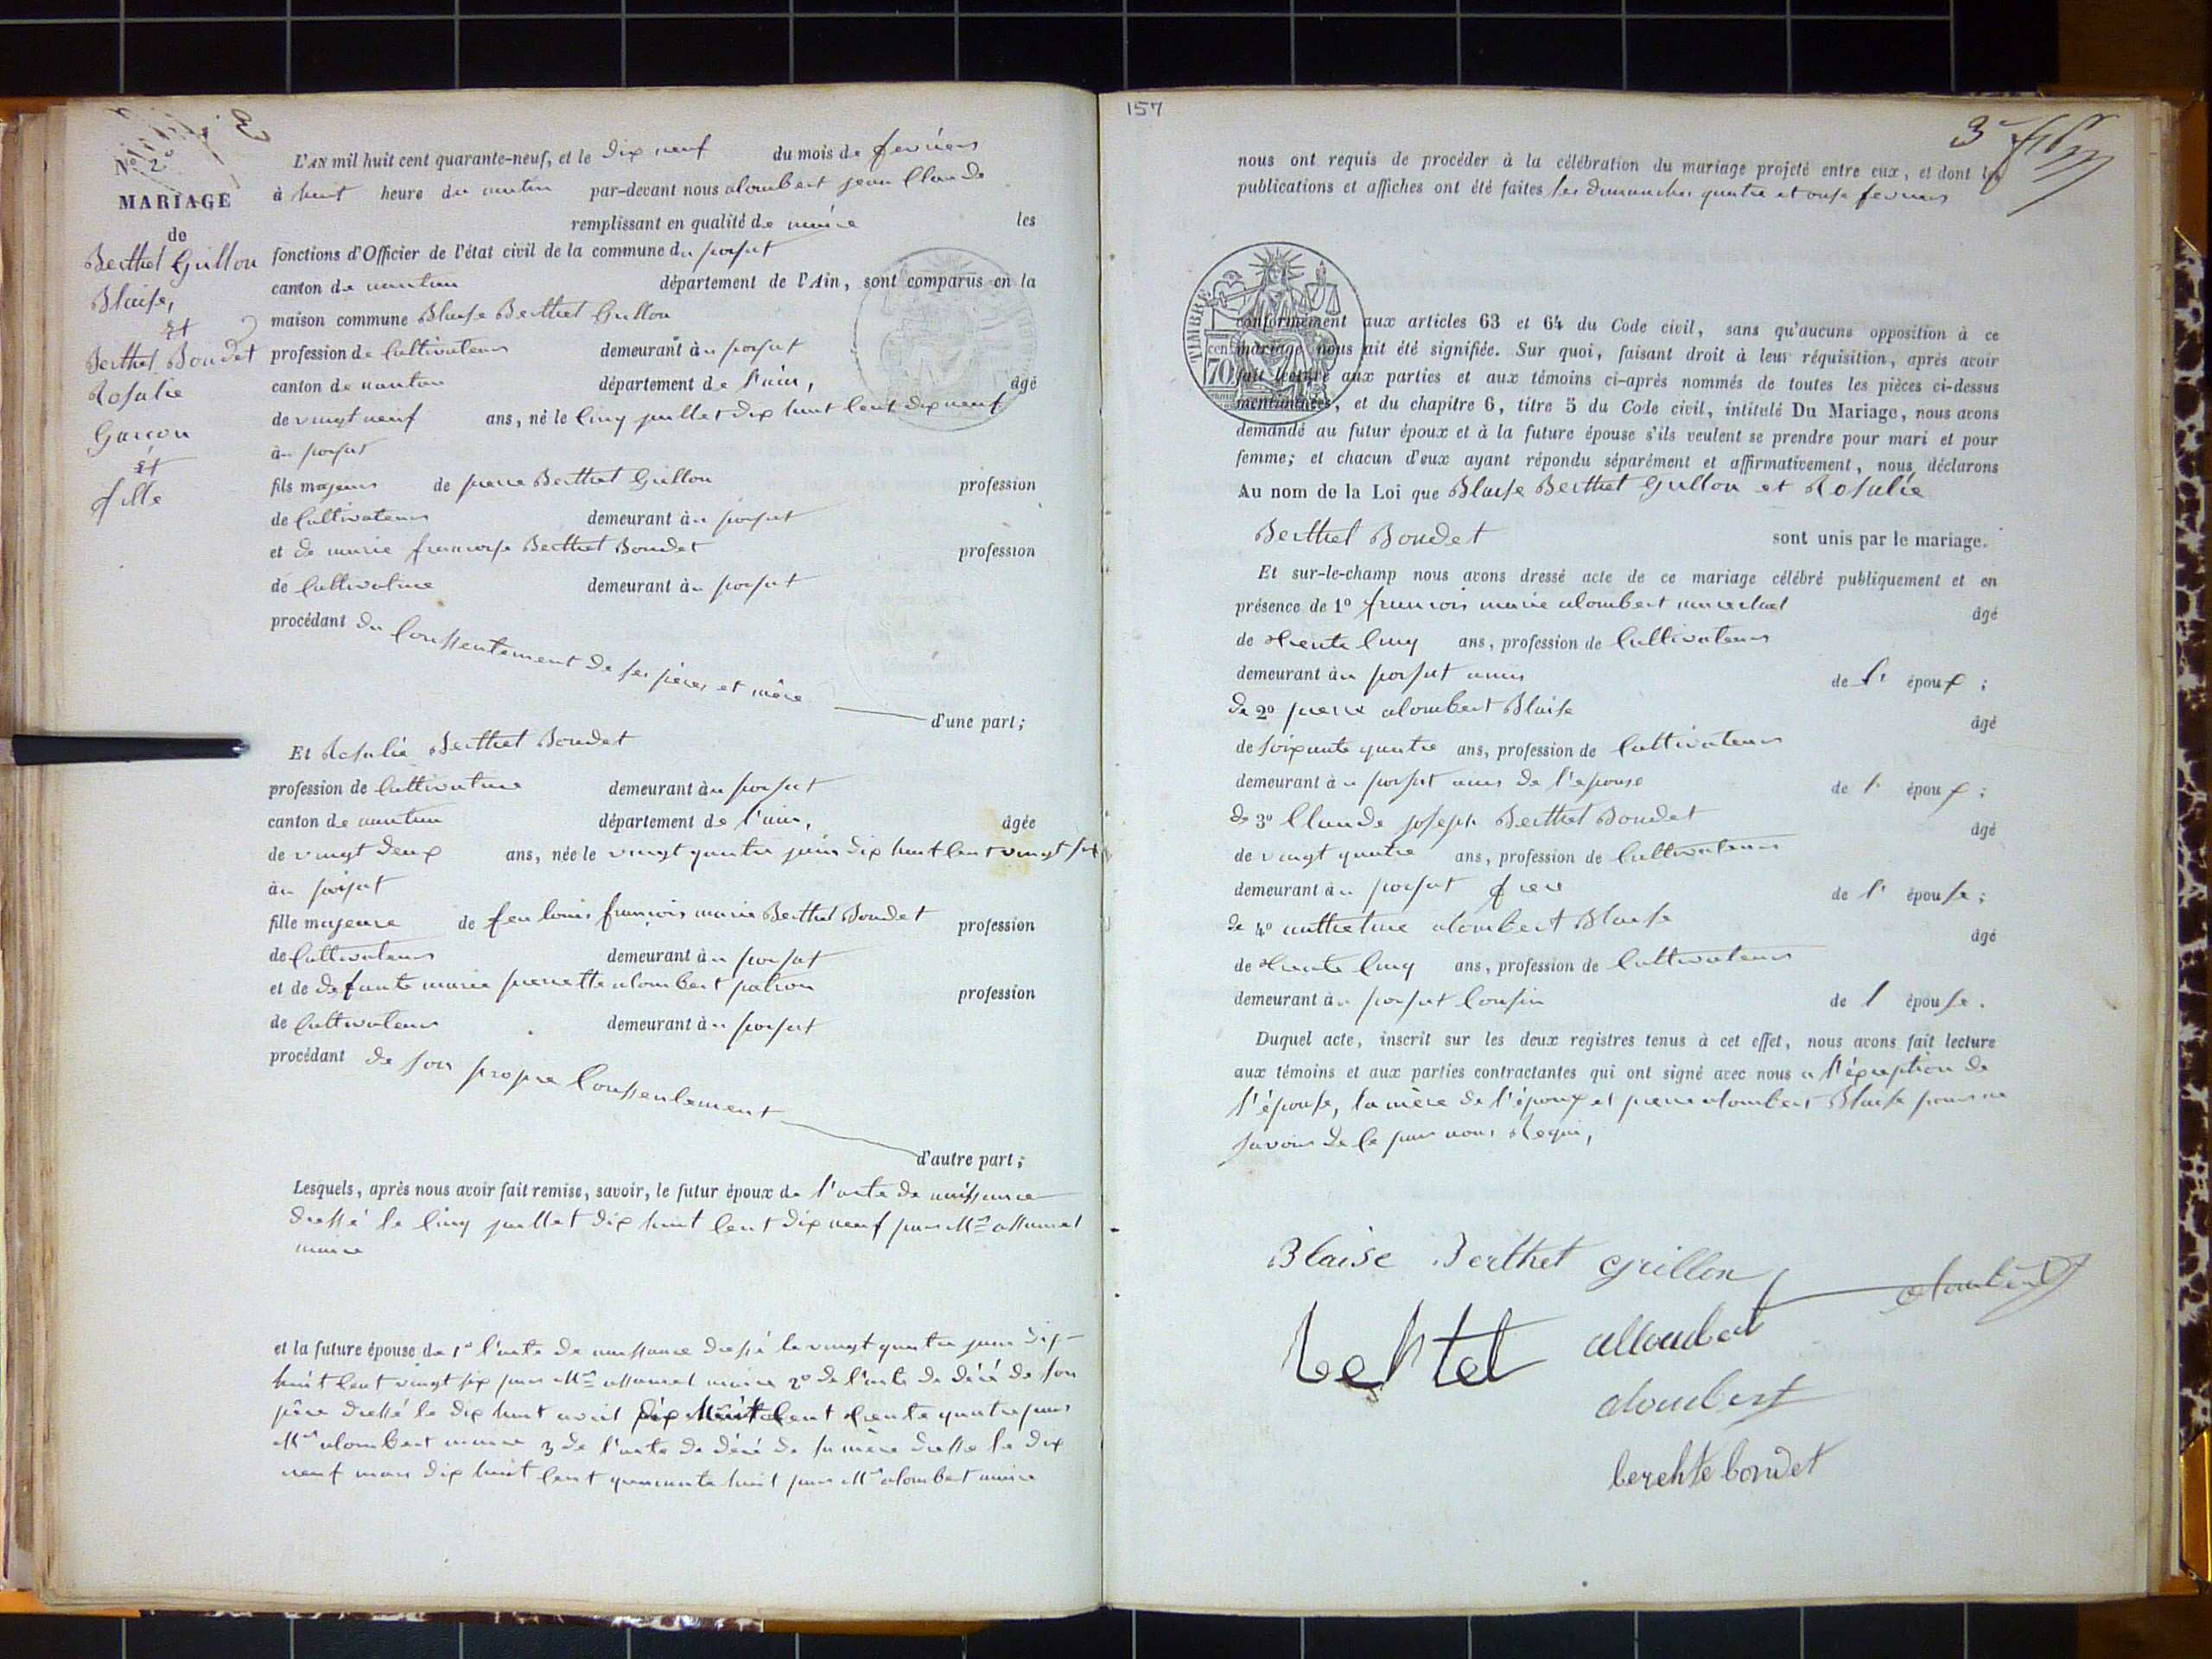 157
3
No 2
MARIAGE
de
Berthet Grillon
Blaise,
et
Berthet Bondet
Rosalie
Garcon
et
fille
L'AN mil huit cent quarante-neuf, et le dix neuf du mois de fevriers
à huit heure du matin par-devant nous alombert jean Claude
remplissant en qualité de maire les
fonctions d'Officier de l'état civil de la commune du poisat
canton de nantua département de l'Ain, sont comparus en la
maison commune Blaise Berthet Grillon
profession de Cultivateur demeurant àu poisat
canton de nantua département de l'ain, âgé
de vingt neuf ans, né le Cinq juillet dix huit Cent dix neuf
àu poisat
fils majeur de pierre Berthet Grillon profession
de Cultivateur demeurant àu poisat
et de marie francoise Berthet Bondet profession
de Cultivatrice demeurant àu poisat
procédant du Conssentement de ses pères et mère
d'une part;
Et Rosalie Berthet Bondet
profession de Cultivatrice demeurant àu poisat
canton de nantua département de l'ain, âgée
de vingt deux ans, née le vingt quatre juin dix huit Cent vingt six
àu poisat
fille majeure de feu louis françois marie Berthet Bondet profession
de Cultivateur demeurant àu poisat
et de defunte marie pierrette alombert patron profession
de Cultivateur demeurant àu poisat
procédant de son propre Conssentement
d'autre part;
Lesquels, après nous avoir fait remise, savoir, le futur époux de l'acte de naissance
dressé le Cinq juillet dix huit Cent dix neuf par Mr assumel
maire
et la future épouse de 1o l'acte de naissance dressé le vingt quatre juin dix
huit Cent vingt six par Mr assumel maire 2o de l'acte de décé de son
père dressé le dix huit avril dix huit Cent trente quatre par
Mr alombert maire 3 de l'acte de décé de sa mère dressé le dix
neuf mars dix huit Cent quarante huit par Mr alombert maire
3e
nous ont requis de procéder à la célébration du mariage projeté entre eux, et dont les
publications et affiches ont été faites les dimanches quatre et onze fevriers
TIMBRE
cen
70
conformément aux articles 63 et 64 du Code civil, sans qu'aucune opposition à ce
mariage nous ait été signifiée. Sur quoi, faisant droit à leur réquisition, après avoir
fait lecture aux parties et aux témoins ci-après nommés de toutes les pièces ci-dessus
mentionnées, et du chapitre 6, titre 5 du Code civil, intitulé Du Mariage, nous avons
demandé au futur époux et à la future épouse s'ils veulent se prendre pour mari et pour
femme; et chacun d'eux ayant répondu séparément et affirmativement, nous déclarons
Au nom de la Loi que Blaise Berthet Grillon et Rosalie
Berthet Bondet sont unis par le mariage.
Et sur-le-champ nous avons dressé acte de ce mariage célébré publiquement et en
présence de 1o francois marie alombert marechal âgé
de trente Cinq ans, profession de Cultivateur
demeurant àu poisat amis de l' époux;
de 2o pierre alombert Blaise âgé
de soixante quatre ans, profession de Cultivateur
demeurant àu poisat amis de l'épouse de l' époux;
de 3o Claude joseph Berthet Bondet âgé
de vingt quatre ans, profession de Cultivateur
demeurant àu poisat frere de l' épouse;
de 4o alombert Blaise âgé
de trente Cinq ans, profession de Cultivateur
demeurant àu poisat Cousin de l épouse.
Duquel acte, inscrit sur les deux registres tenus à cet effet, nous avons fait lecture
aux témoins et aux parties contractantes qui ont signé avec nous a l'éxception de
l'épouse, la mère de l'époux et pierre alombert Blaise pour ne
savoir de Ce par nous Requi,
Blaise Berthet Grillon alombert
bertet alloubert
aloubert
berehte bondet